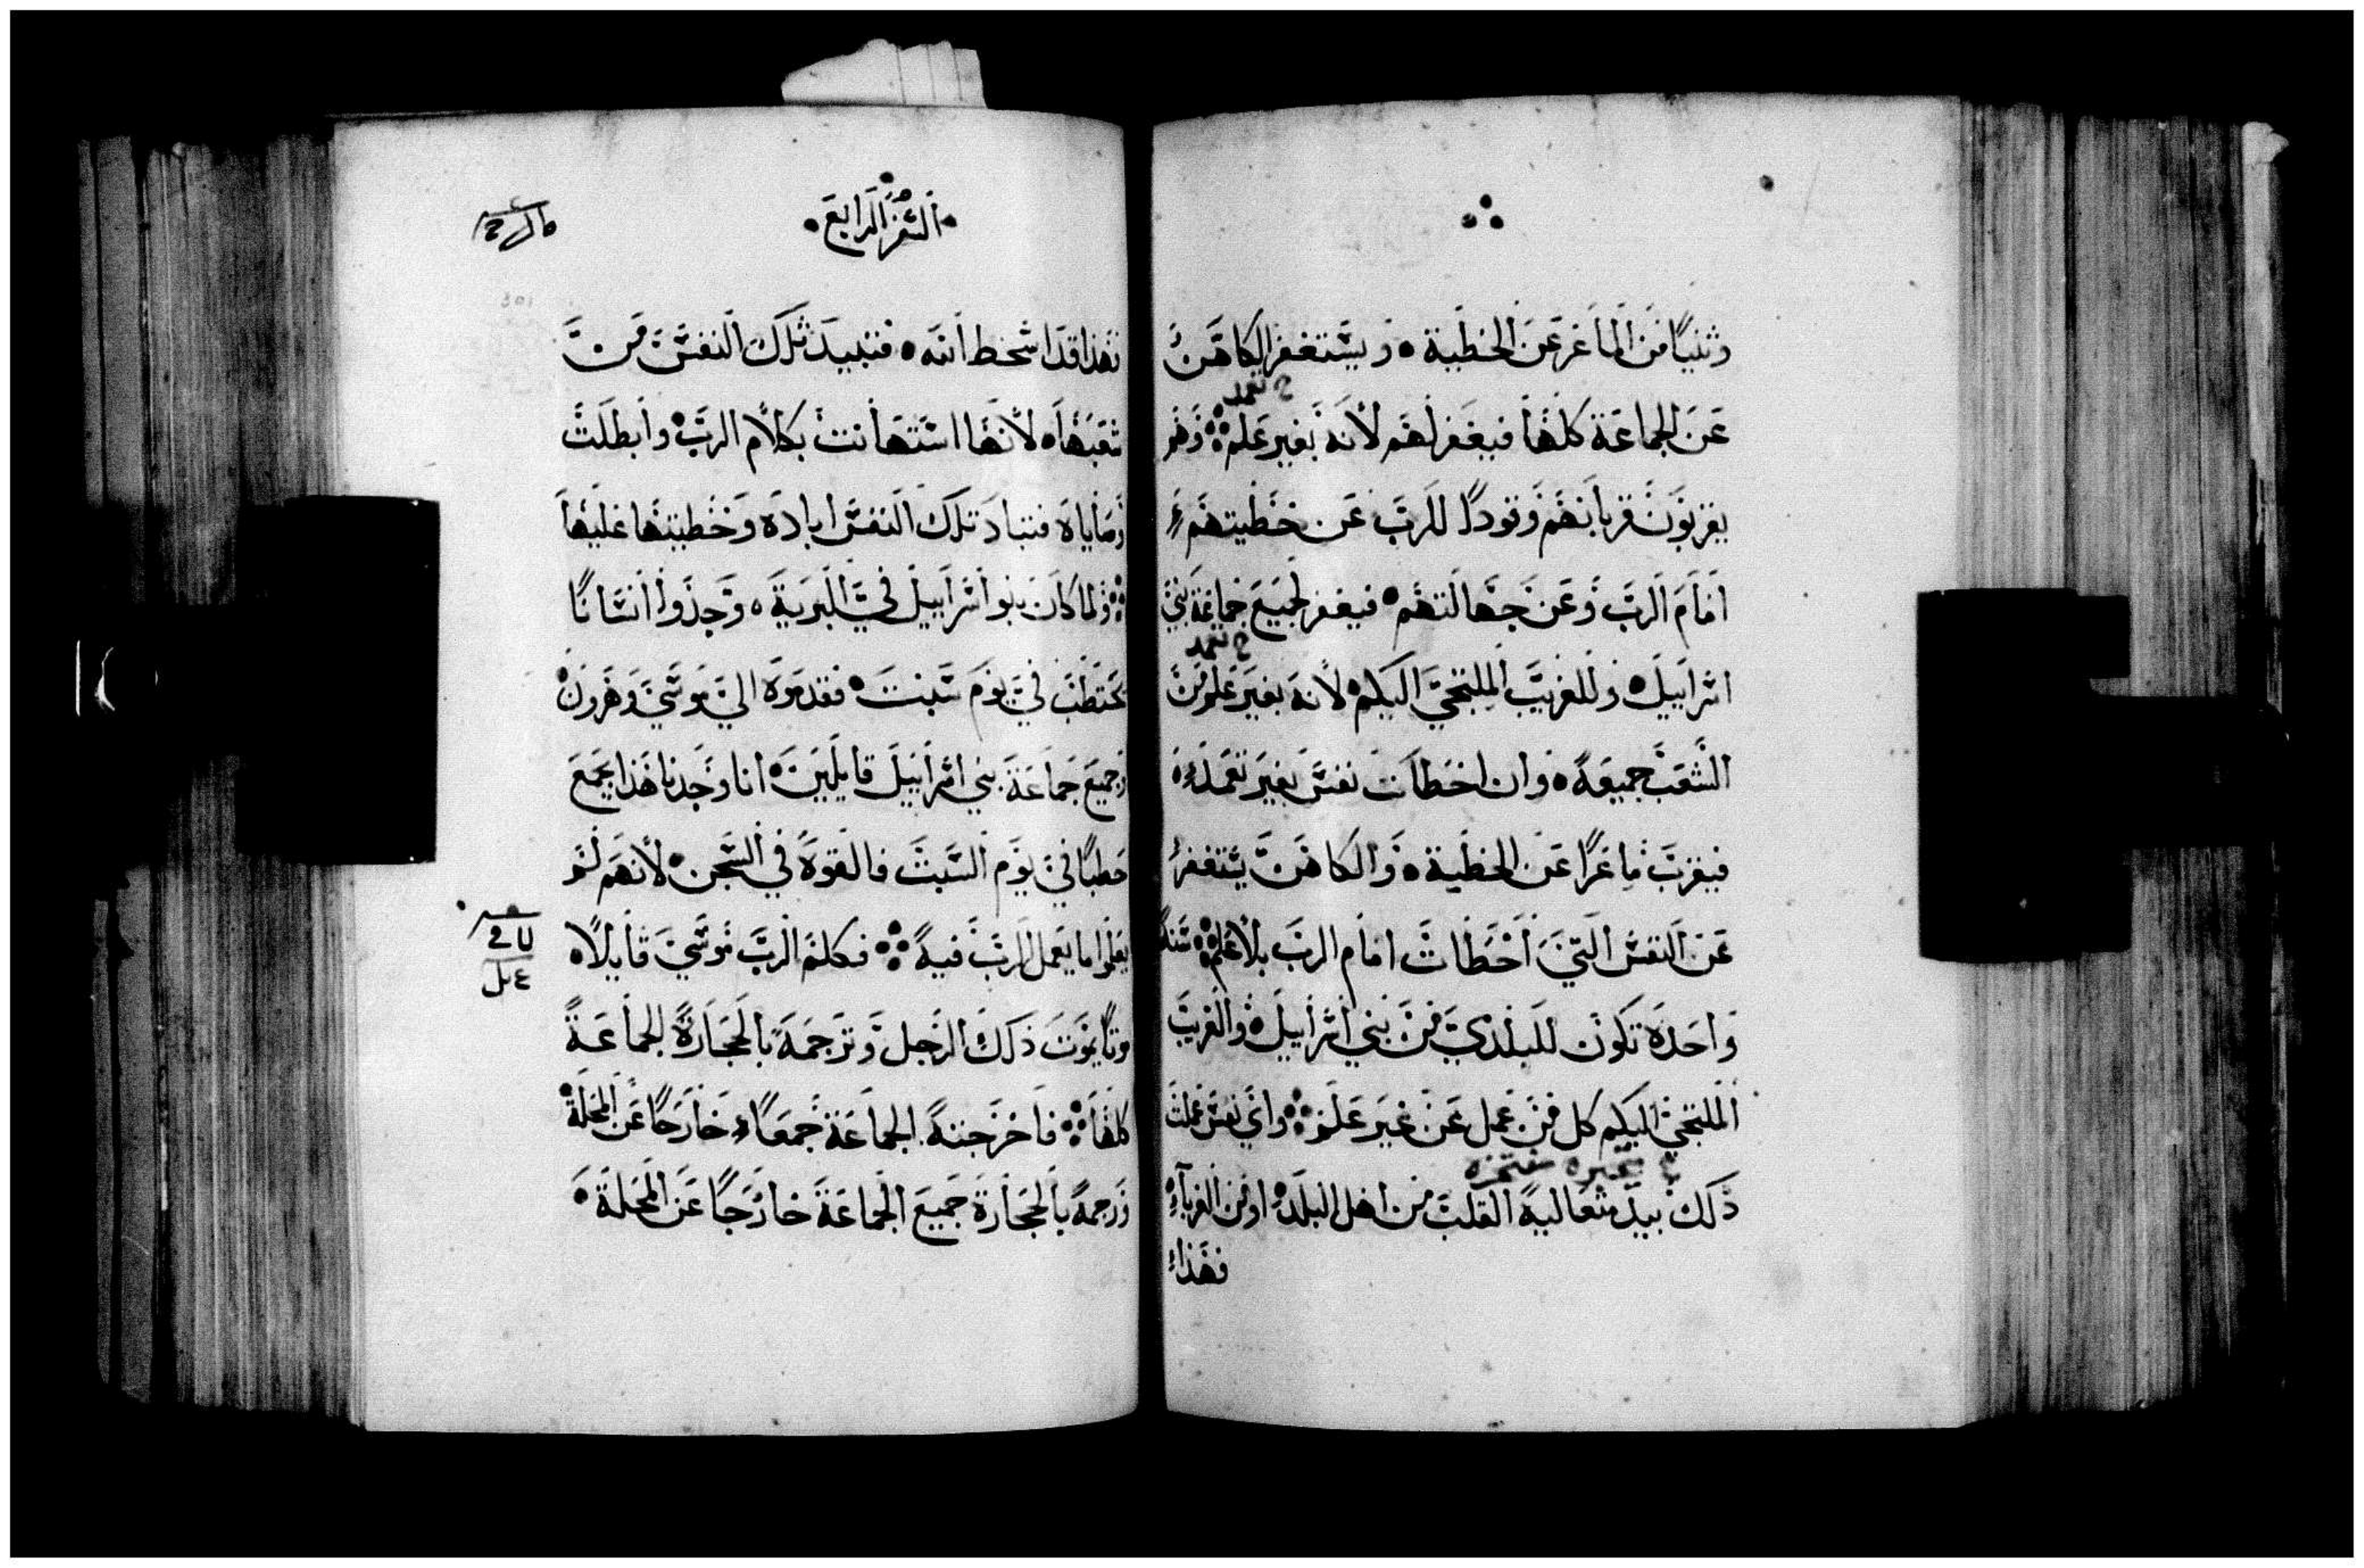 وثنيًا من الماعز عن الخطية ويستغفر الكاهن
ح تعمد
عن الجماعة كلها فيغفر لهم لأنه بغير علم وهم
يقربون قربانهم وقودًا للرب عن خطيتهم
امام الرب وعن جهالتهم فيغفر لجميع جماعة بني
ح تعمد
اسراييل وللغريب الملتجي اليكم لأنه بغير علم من
الشعب جميعه وان اخطات نفس بغير تعمد
فيقرب ماعزًا عن الخطية والكاهن يستغفر
عن النفس التي أخطات امام الرب بلا علم سنة
واحدة تكون للبلدي من بني اسراييل والغريب
الملتجي اليكم كل من عمل عن غير علم واي نفس عملت
ذلك بيد متعالية القلب من اهل البلد او من الغرباء
فهذا
السفر الرابع
فهذا قد اسخط الله فتبيد تلك النفس من
شعبها لأنها استهانت بكلام الرب وابطلت
وصاياه فتباد تلك النفس ابادة وخطيتها عليها
ولما كان بنو اسراييل في البرية وجدوا انسانًا
يحتطب في يوم سبت فقدموه الي موسي وهرون
وجميع جماعة بني اسراييل قايلين انا وجدنا هذا يجمع
حطبًا في يوم السبت فالقوه في السجن لأنهم لم
يعلموا ما يعمل الرب فيه فكلم الرب موسي قايلًا
موتًا يموت ذلك الرجل وترجمه بالحجارة الجماعة
كلها فاخرجته الجماعة جمعاء خارجًا عن المحلة
ورجمه بالحجارة جميع الجماعة خارجًا عن المحلة